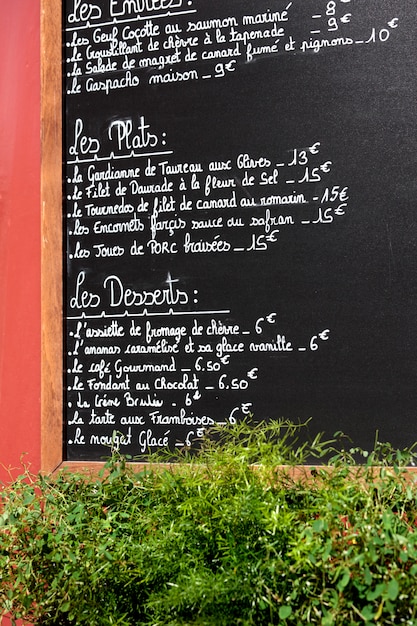 Les Entrées:
.Les Oeuf Coçotte au saumon mariné _ 8€
.Le Croustillant de chèvre à la tapenade _ 9€
.La Salade de magret de canard fumé et pignons _ 10€
.Le Gaspacho maison _ 9€
Les Plats:
.La Gardianne de Taureau aux Olives - 13€
.Le Filet de Daurade à la fleur de Sel _ 15€
.Le Tournedos de filet de canard au romarin - 15€
.Les Encornets farçis sauce au safran _ 15€
.Les Joues de PORC braisées _ 15€
Les Desserts:
.L'assiette de fromage de chèvre _ 6€
.L'ananas caramélisé et sa glace vanille _ 6€
.Le café Gourmand _ 6.50€
.Le Fondant au Chocolat _ 6.50€
.La Crème Brulée - 6€
.La tarte aux Framboises _ 6€
.Le nougat Glacé _ 6€